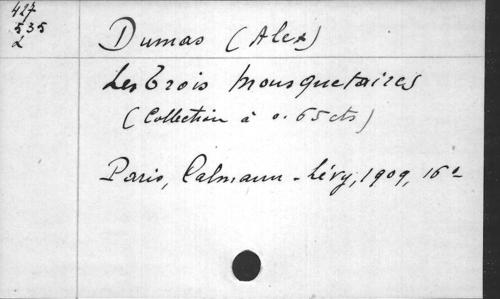 427
535
L
Dumas (Alex)
Les Trois Mousquetaires
(Collection à 0.65cts)
Paris, Calmann-Lévy, 1909, 16º